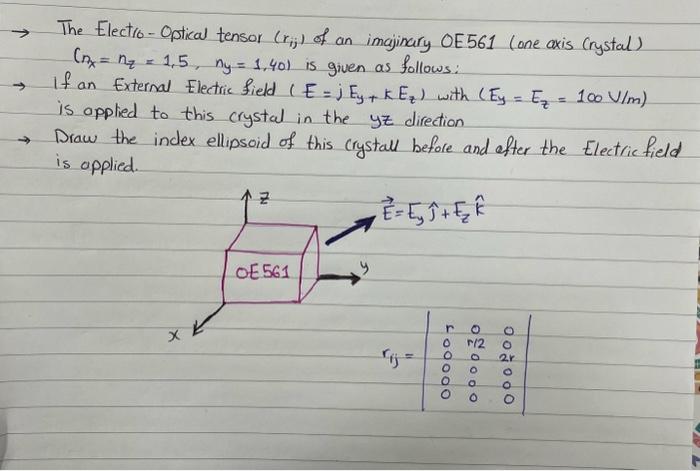 → The Electro-Optical tensor (rij) of an imajinary OE561 (one axis Crystal)
(nx = nz = 1,5, ny = 1,40) is given as follows:
→ If an External Electric field (E = j Ey + k Ez) with (Ey = Ez = 100 V/m)
is applied to this crystal in the yz direction
→ Draw the index ellipsoid of this Crystall before and after the Electric field
is applied.
z
E = Ey ĵ + Ez k̂
OE561
y
x
rij =
r 0 0
0 r/2 0
0 0 2r
0 0 0
0 0 0
0 0 0